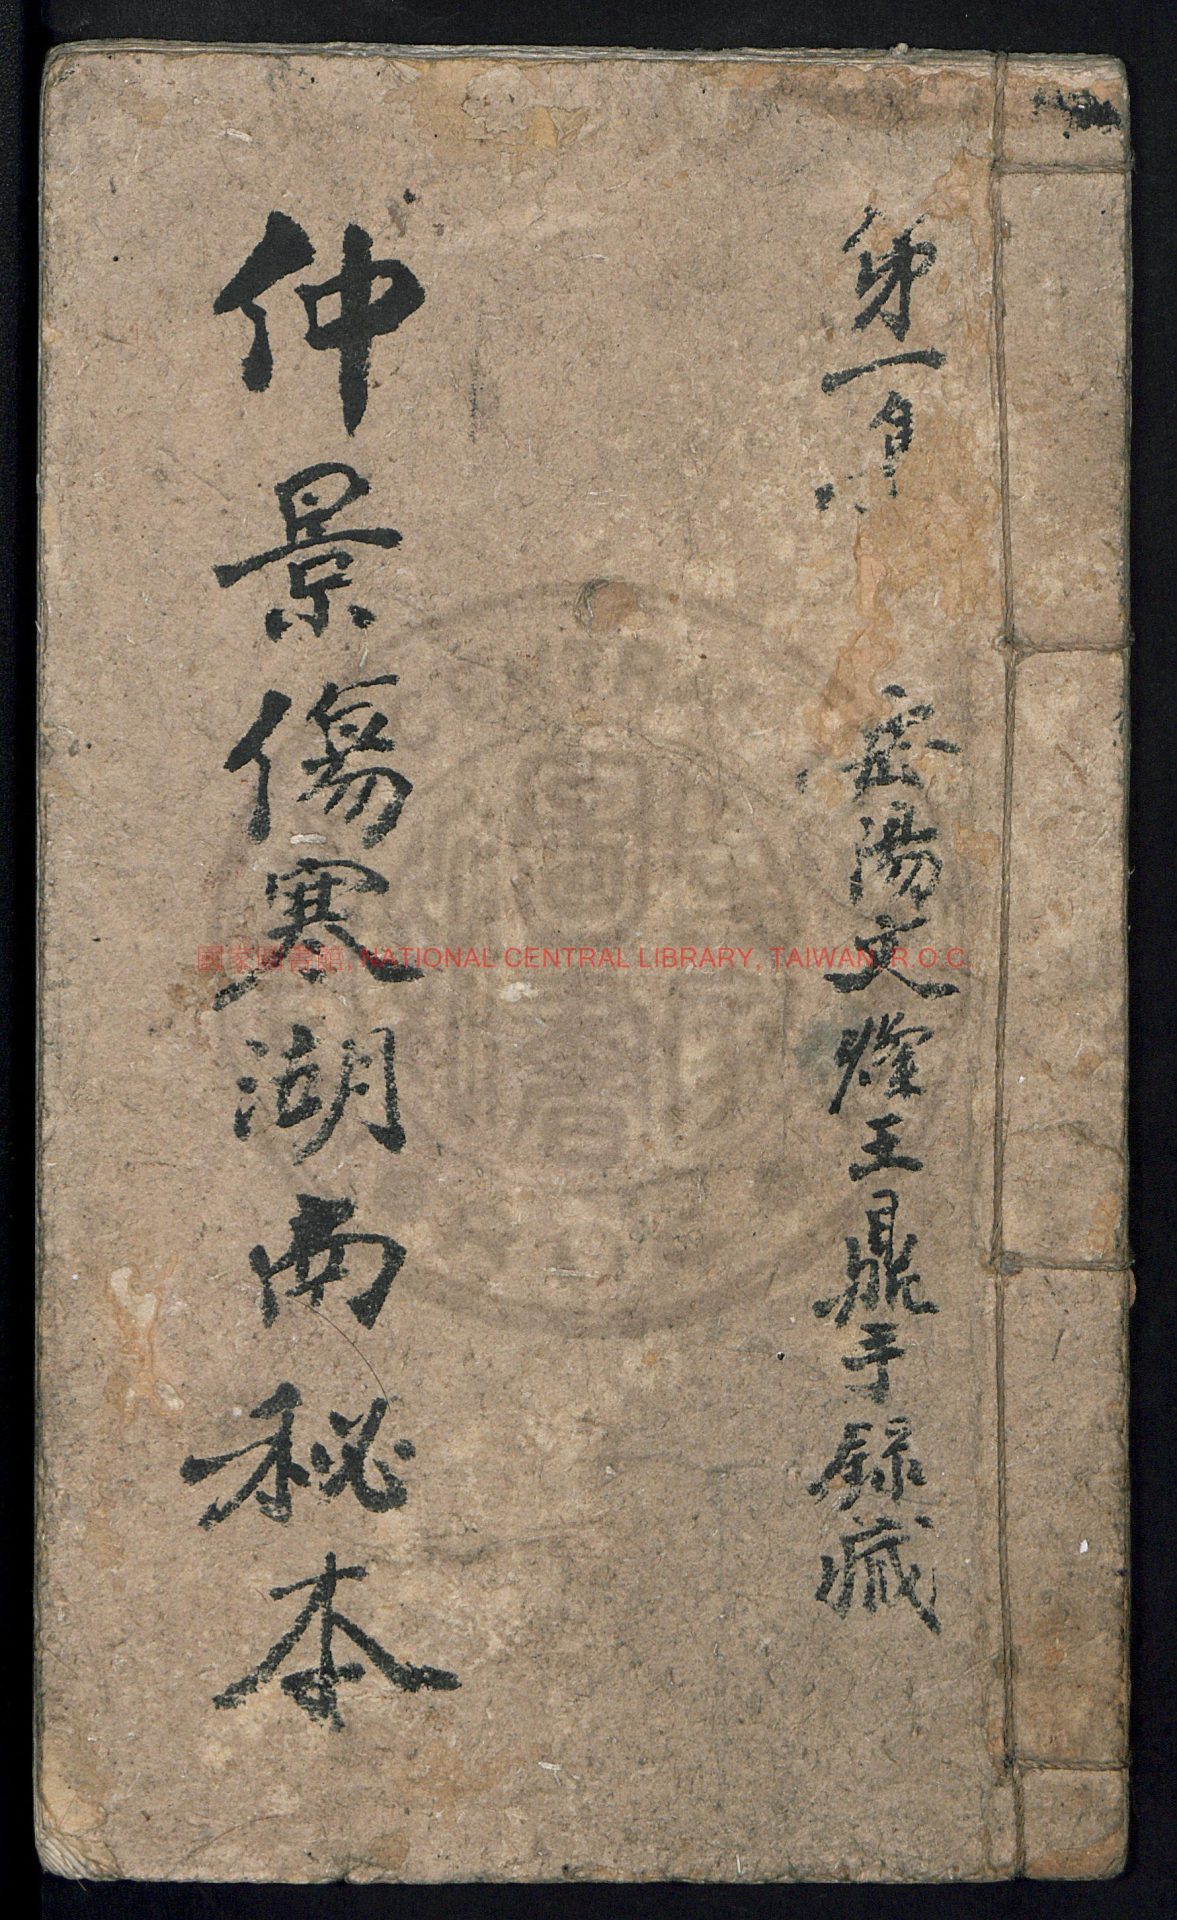 第一
陽文燦王鼎手錄藏
仲景傷寒湖南秘本
國家圖書館, NATIONAL CENTRAL LIBRARY, TAIWAN, R.O.C.